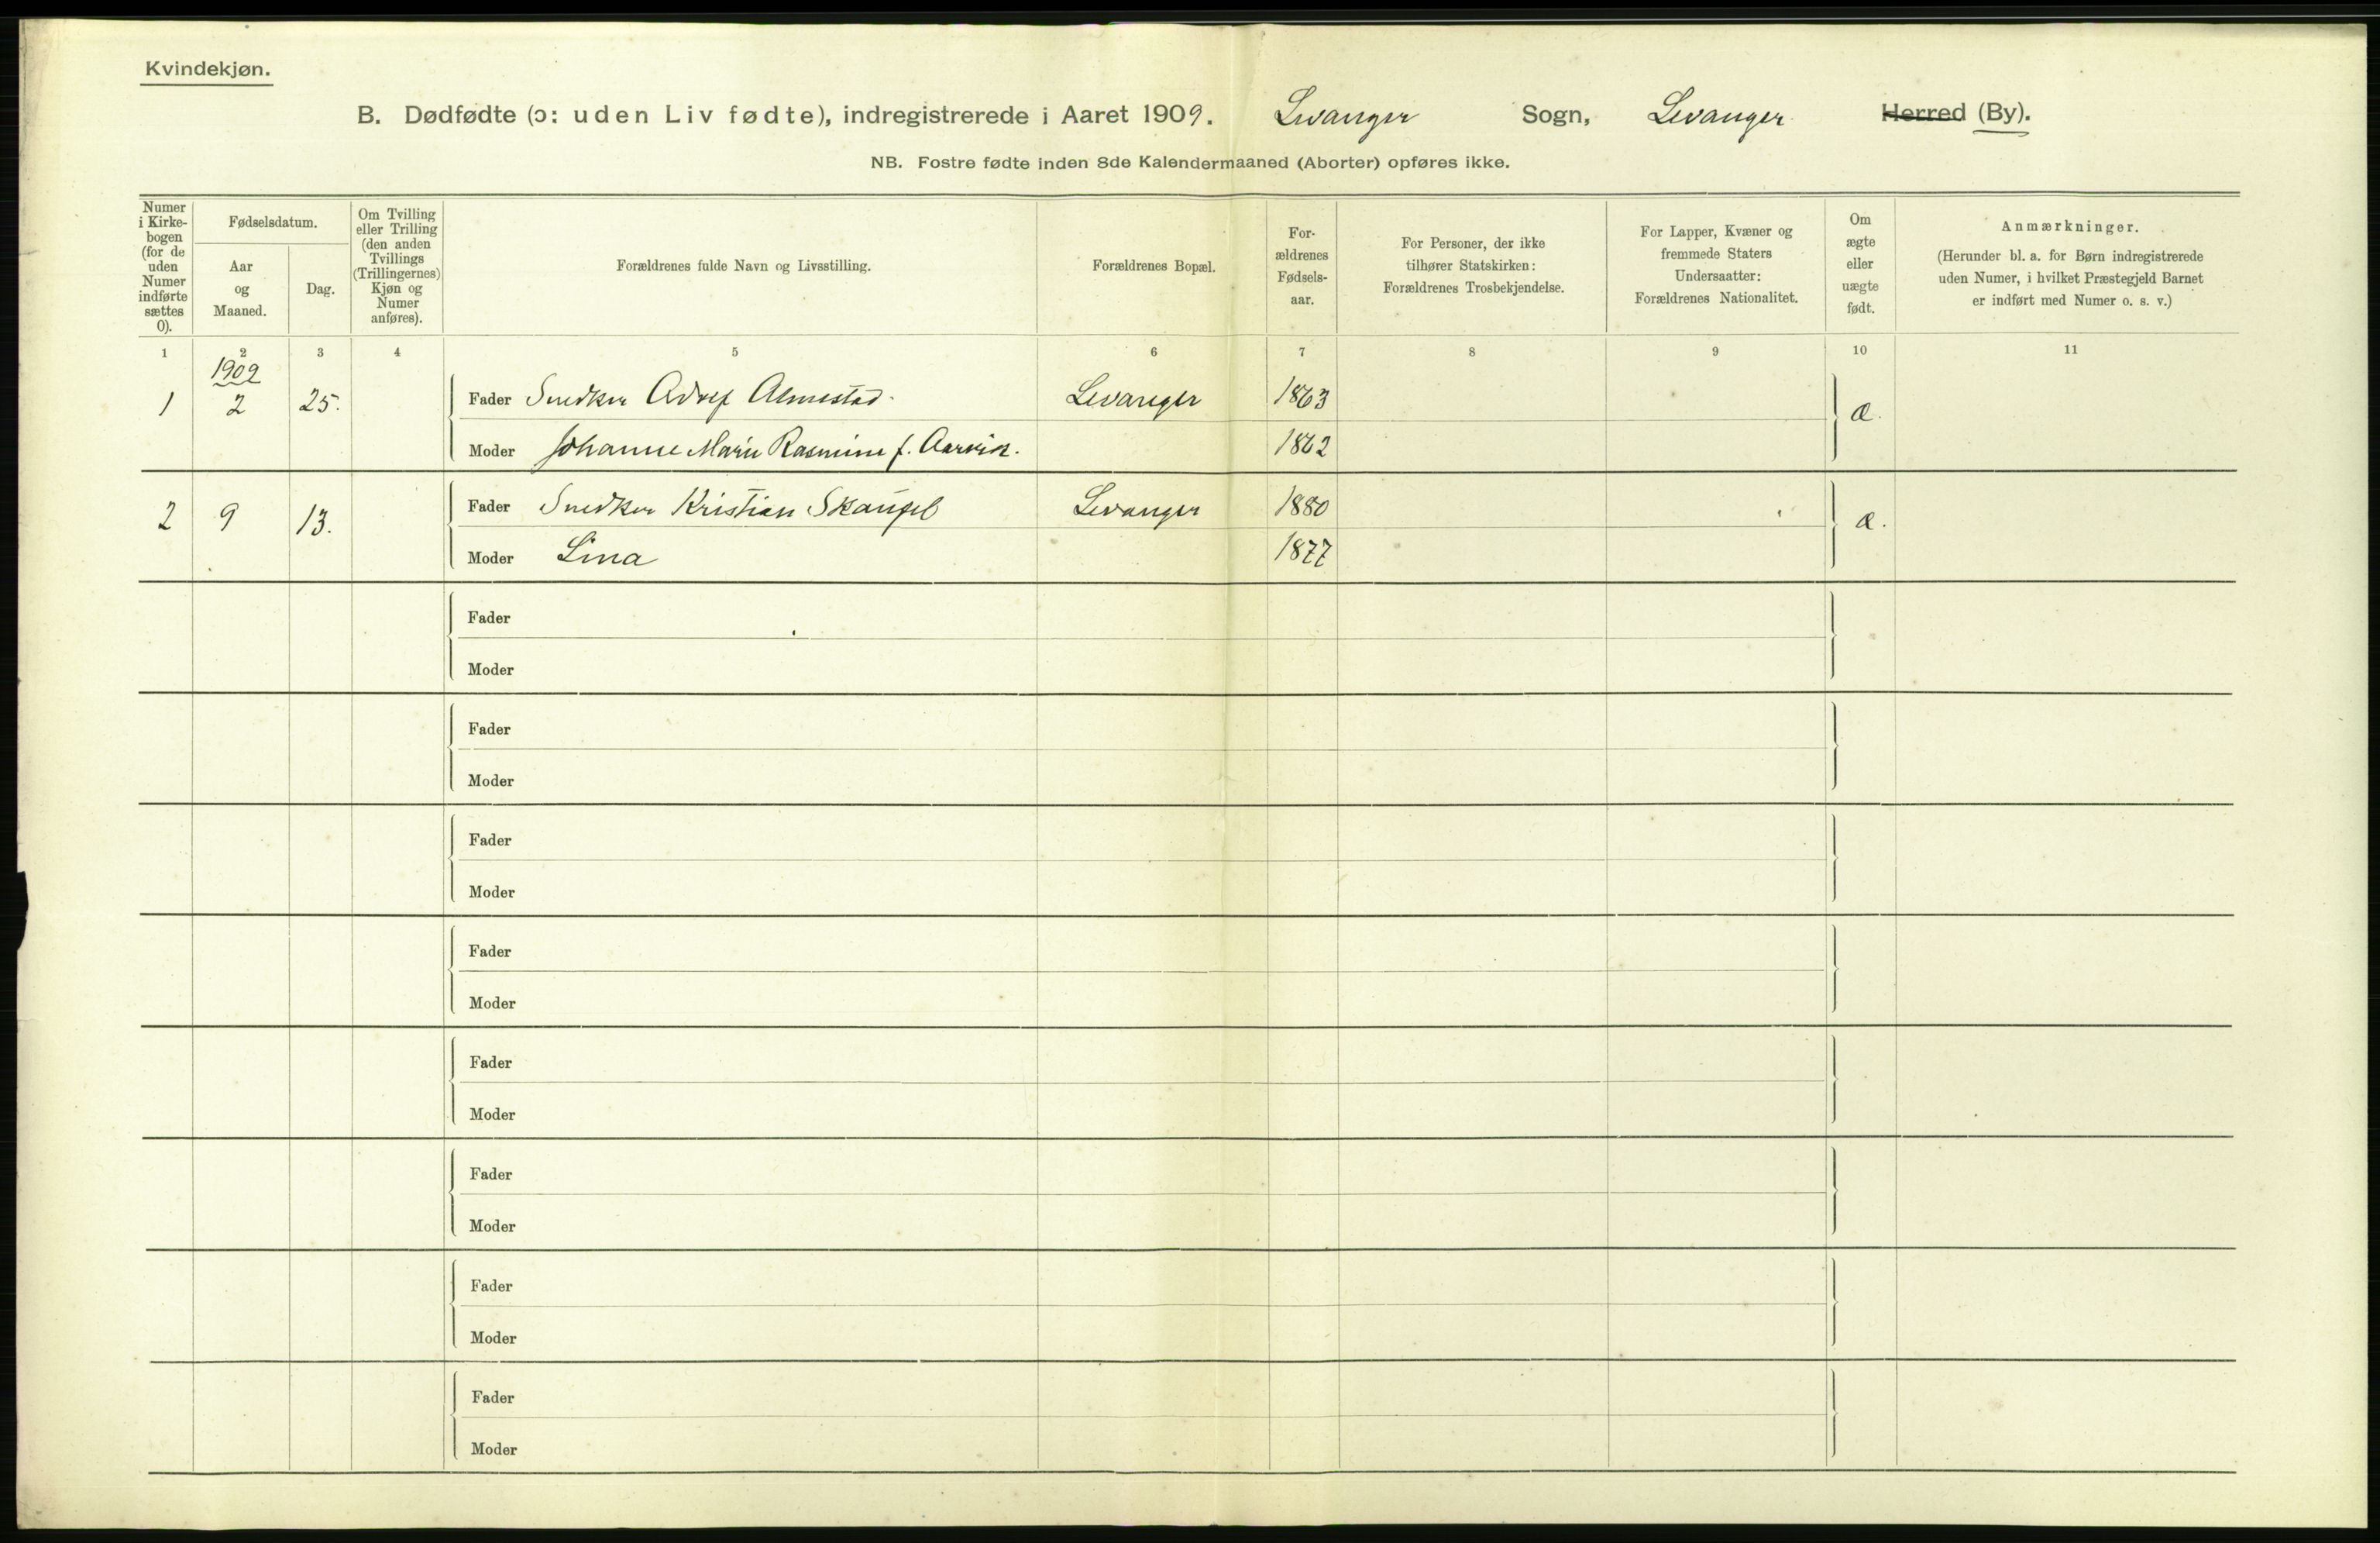 Kvindekjøn.
B. Dødfødte (ɔ: uden Liv fødte), indregistrerede i Aaret 1909. Levanger Sogn, Levanger Herred (By).
NB. Fostre fødte inden 8de Kalendermaaned (Aborter) opføres ikke.
Numer i Kirke-bogen (for de uden Numer indførte sættes 0).
Fødselsdatum.
Aar og Maaned.
Dag.
Om Tvilling eller Trilling (den anden Tvillings (Trillingernes) Kjøn og Numer anføres).
Forældrenes fulde Navn og Livsstilling.
Forældrenes Bopæl.
For-ældrenes Fødsels-aar.
For Personer, der ikke tilhører Statskirken: Forældrenes Trosbekjendelse.
For Lapper, Kvæner og fremmede Staters Undersaatter: Forældrenes Nationalitet.
Om ægte eller uægte født.
Anmærkninger.
(Herunder bl. a. for Børn indregistrerede uden Numer, i hvilket Præstegjeld Barnet er indført med Numer o. s. v.)
1 2 3 4 5 6 7 8 9 10 11
1909
1 2 25. Fader Snedker Adolf Almestad. Levanger 1863 æ.
Moder Johanne Marie Rasmine f. Aarvik. 1862
2 9 13. Fader Snedker Kristian Levanger 1880 æ.
Moder Lina 1877
Fader
Moder
Fader
Moder
Fader
Moder
Fader
Moder
Fader
Moder
Fader
Moder
Fader
Moder
Fader
Moder